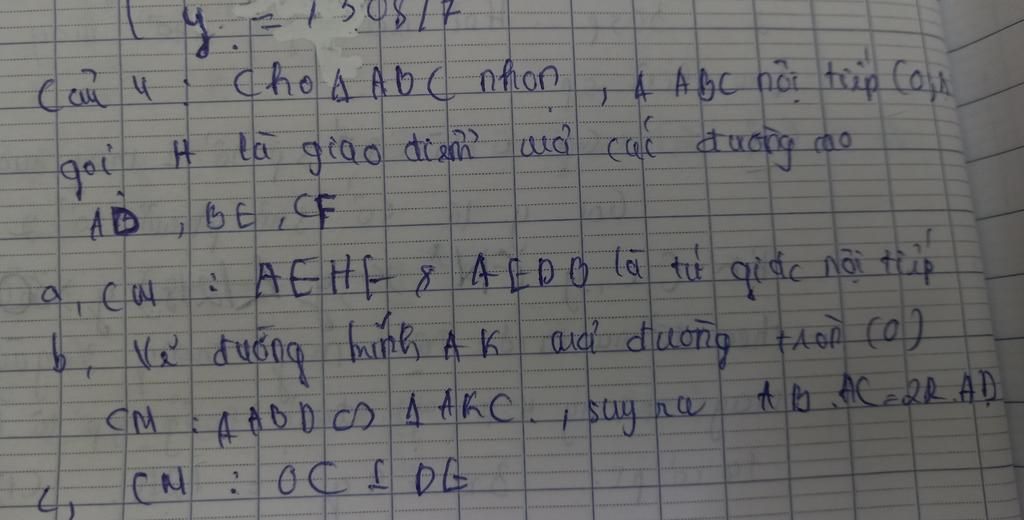 y = 1,50817
Câu 4 : Cho Δ ABC nhọn , Δ ABC nội tiếp (O,R
gọi H là giao điểm của các đường cao
AD , BE , CF
a, CM : AEHF & AEDB là tứ giác nội tiếp
b, Vẽ đường kính AK của đường tròn (O)
CM : Δ ABD ∽ Δ AKC . , suy ra AB.AC=2R.AD
c, CM : OC ⊥ DE